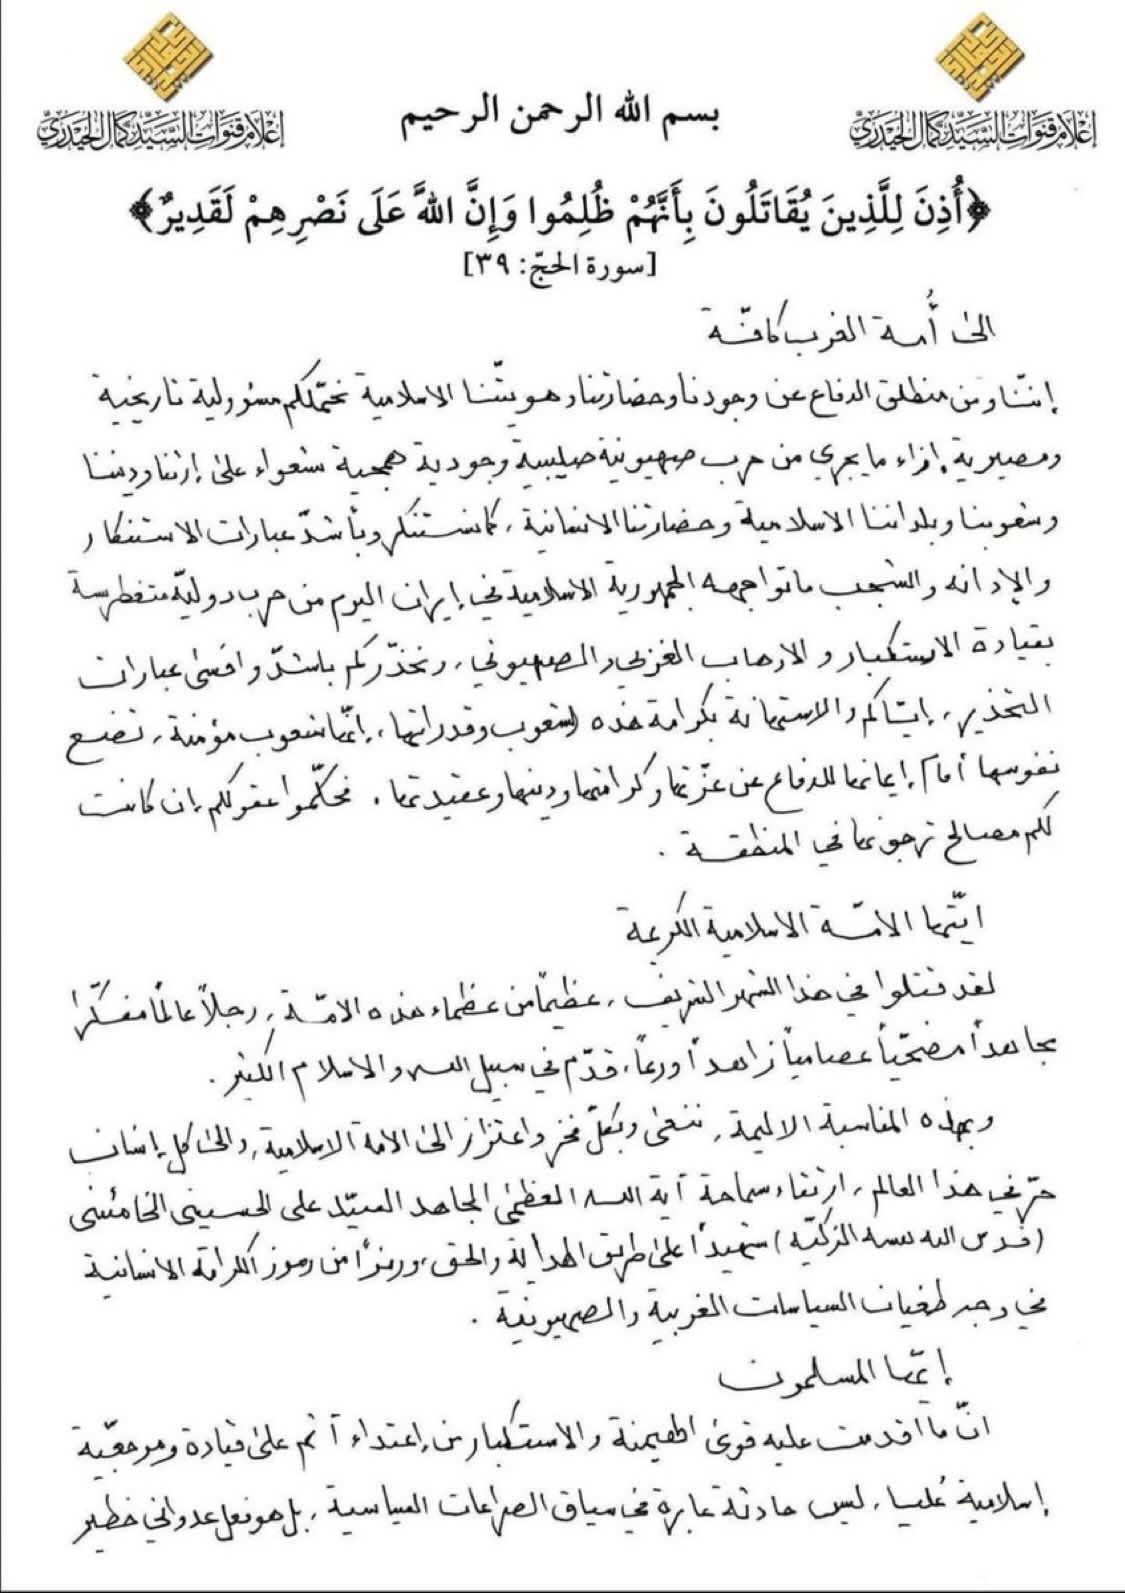 إعلام قنوات السيد كمال الحيدري
إعلام قنوات السيد كمال الحيدري
بسم الله الرحمن الرحيم
﴿أُذِنَ لِلَّذِينَ يُقَاتَلُونَ بِأَنَّهُمْ ظُلِمُوا وَإِنَّ اللَّهَ عَلَى نَصْرِهِمْ لَقَدِيرٌ﴾
[سورة الحجّ: ٣٩]
الى أُمة الغرب كافّة
إننّا ومن منطلق الدفاع عن وجودنا وحضارتنا وهويتّنا الاسلامية نحمّلكم مسؤولية تاريخية
ومصيرية إزاء ما يجري من حرب صهيونية صليبية وجودية همجية شعواء على إرثنا وديننا
وشعوبنا وبلداننا الاسلامية وحضارتنا الانسانية، كما نستنكر وبأشدّ عبارات الاستنكار
والإدانه والشجب ما تواجهه الجمهورية الاسلامية في إيران اليوم من حرب دوليّة متغطرسة
بقيادة الاستكبار والارهاب الغربي والصهيوني، ونحذّركم باشدّ واقسى عبارات
التحذير، إيّاكم والاستهانة بكرامة هذه الشعوب وقدراتها، إنّها شعوب مؤمنة، تضع
نفوسها أمام إيمانها للدفاع عن عزّتها وكرامتها ودينها وعقيدتها، فحكّموا عقولكم إن كانت
لكم مصالح ترجونها في المنطقة.
ايّتها الامّة الاسلامية الكريمة
لقد قتلوا في هذا الشهر الشريف، عظيماً من عظماء هذه الامّة، رجلاً عالماً مفكّرا
مجاهداً مضحّياً عصامياً زاهداً ورعاً، قدّم في سبيل الله والاسلام الكثير.
وبهذه المناسبة الاليمة، ننعى وبكلّ فخر واعتزاز الى الامة الاسلامية، والى كل إنسان
حرّ في هذا العالم، ارتقاء سماحة آية الله العظمى المجاهد السيّد علي الحسيني الخامنئي
(قدس الله نفسه الزكيّة) شهيداً على طريق الهداية والحق، ورمزاً من رموز الكرامة الانسانية
في وجه طغيان السياسات الغربية والصهيونية.
إيّها المسلمون
انّ ما اقدمت عليه قوى الهيمنة والاستكبار من إعتداء آثم على قيادة ومرجعيّة
إسلامية عُليا، ليس حادثة عابرة في سياق الصراعات السياسية، بل هو فعل عدواني خطير